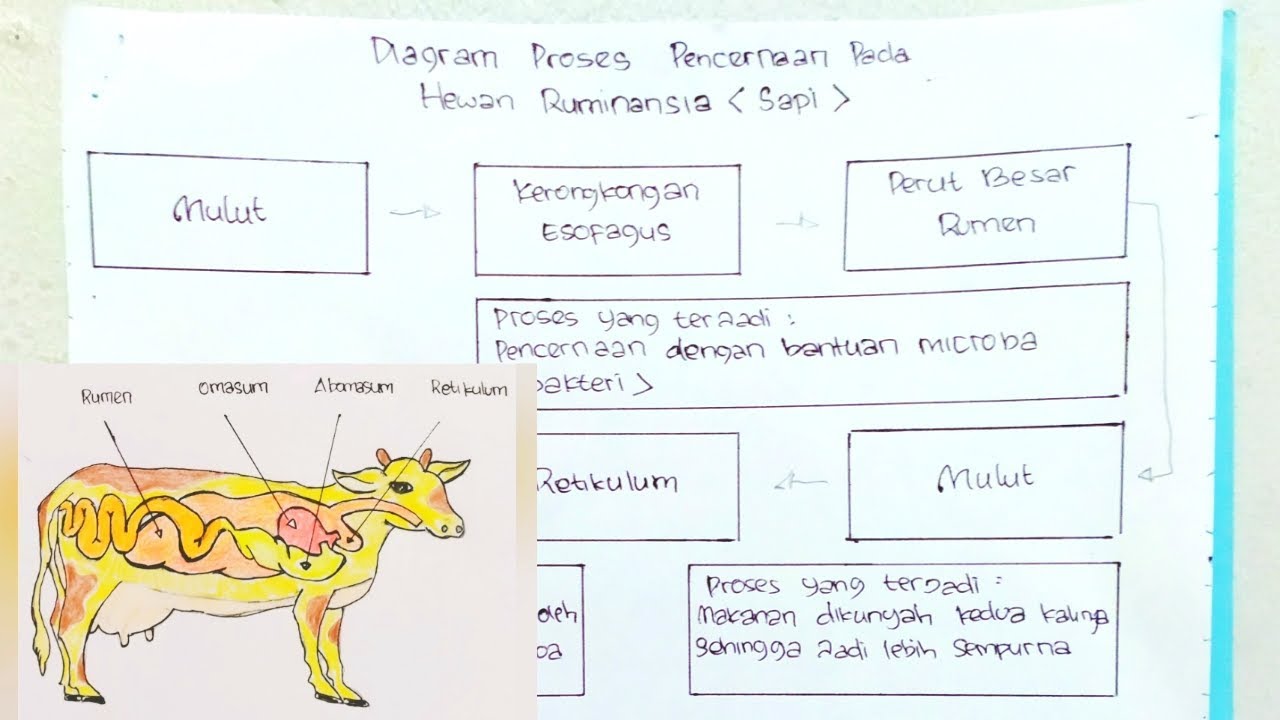 Diagram Proses Pencernaan Pada
Hewan Ruminansia < Sapi >
Mulut
Kerongkongan
Esofagus
Perut Besar
Rumen
Proses yang terjadi :
Pencernaan dengan bantuan microba
bakteri >
Rumen
Omasum
Abomasum
Retikulum
Retikulum
Mulut
oleh
ba
Proses yang terjadi :
Makanan dikunyah kedua kalinya
Sehingga jadi lebih sempurna